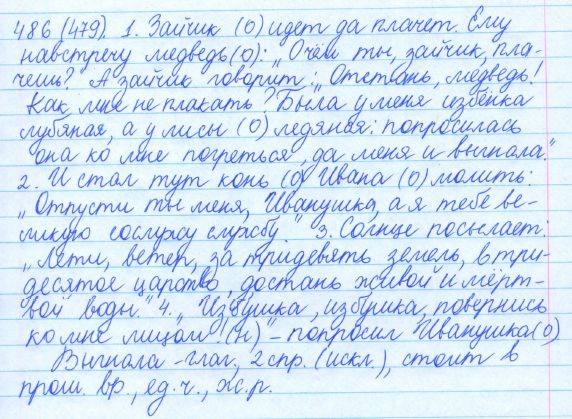 486 (479). 1. Зайчик (О) идет да плачет. Ему
навстречу медведь (О): „О чём ты, зайчик, пла-
чешь? А зайчик говорит: „Отстань, медведь!
Как мне не плакать? Была у меня избёнка
лубяная, а у лисы (О) ледяная: попросилась
она ко мне погреться, да меня и выгнала."
2. И стал тут конь (О) Ивана (О) молить:
„Отпусти ты меня, Иванушка, а я тебе ве-
ликую сослужу службу." 3. Солнце посылает:
„Лети, ветер, за тридевять земель, в три-
десятое царство, достань живой и мёрт-
вой воды." 4. „Избушка, избушка, повернись
ко мне лицом! (Н)" – попросил Иванушка (О)
Выгнала – глаг., 2 спр. (искл.), стоит в
прош. вр., ед. ч., ж. р.